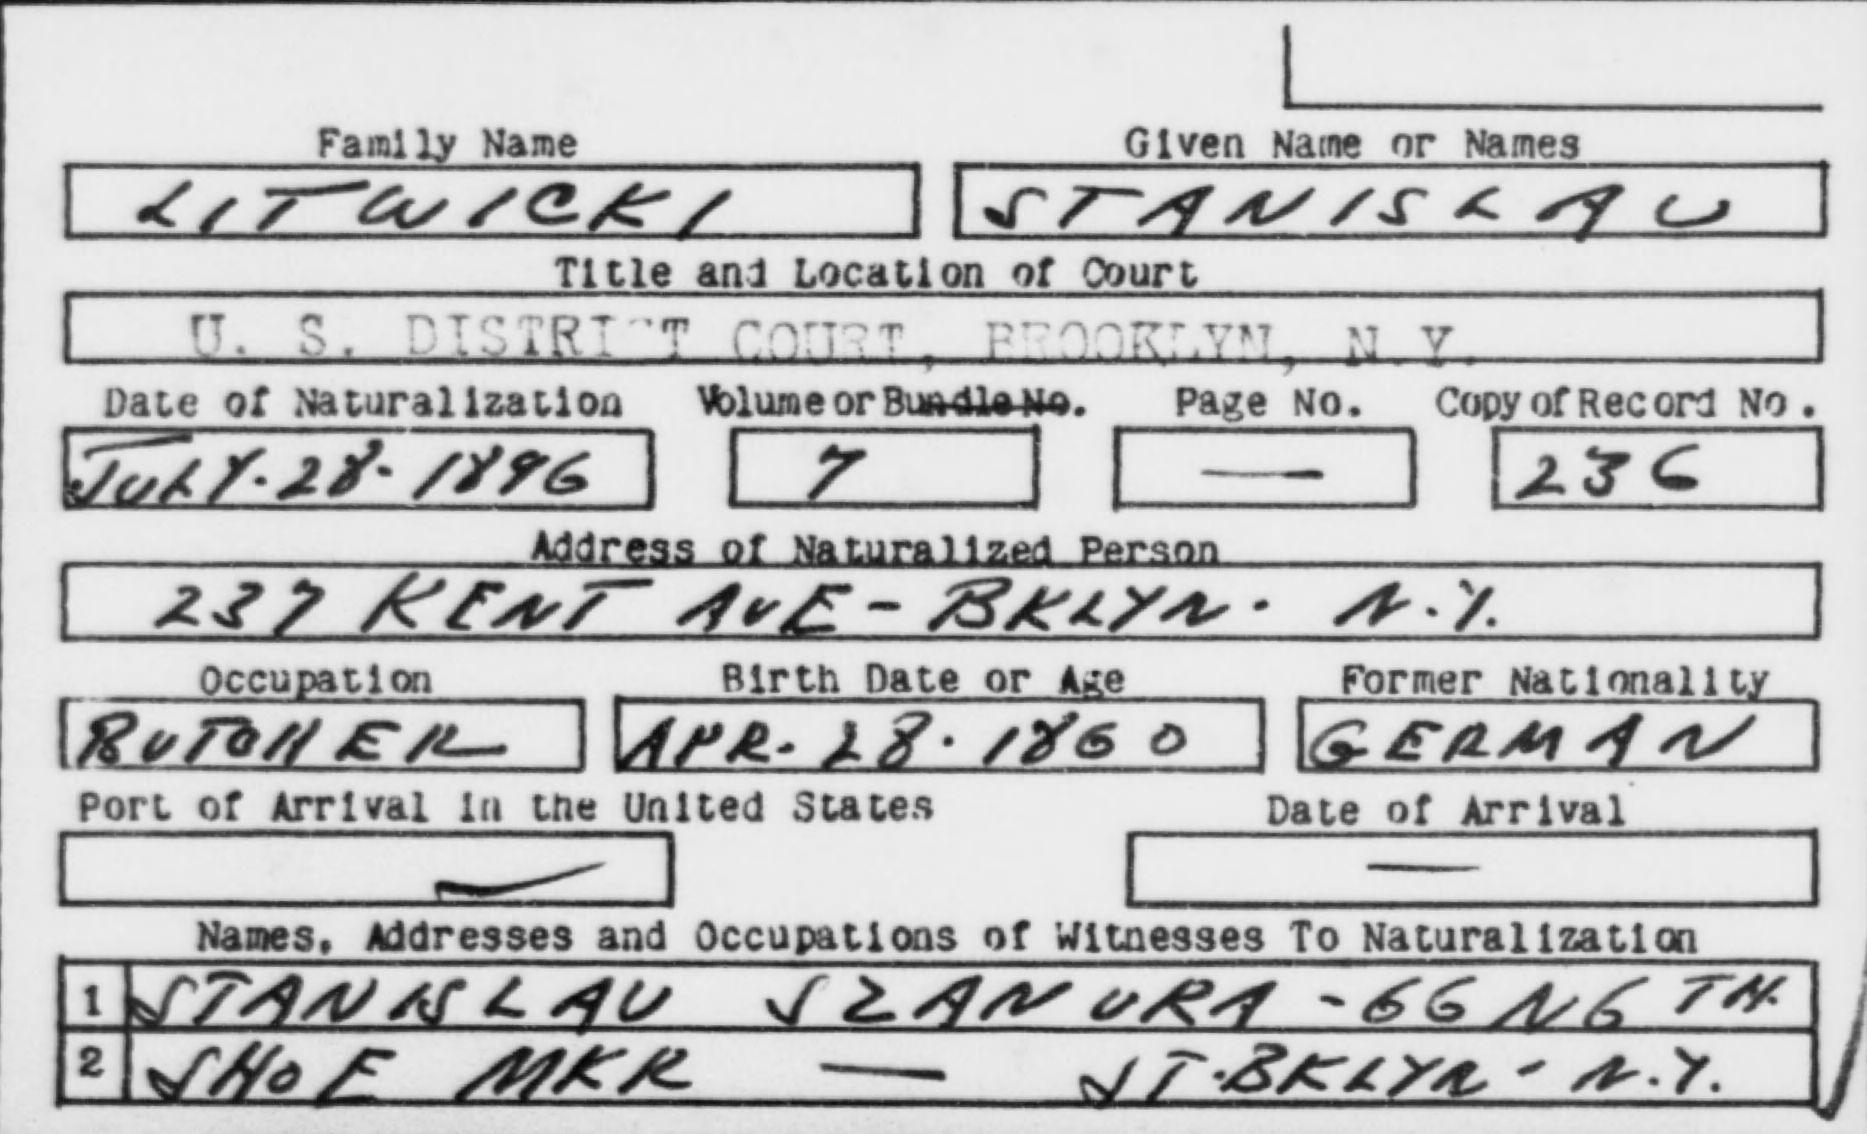 Family Name Given Name or Names
LITWICKI STANISLAU
Title and Location of Court
U. S. DISTRICT COURT, BROOKLYN, N.Y.
Date of Naturalization Volume or Bundle No. Page No. Copy of Record No.
JULY. 28. 1896 7 — 236
Address of Naturalized Person
237 KENT AVE - BKLYN. N.Y.
Occupation Birth Date or Age Former Nationality
BUTCHER APR. 28. 1860 GERMAN
Port of Arrival in the United States Date of Arrival
—
Names, Addresses and Occupations of Witnesses To Naturalization
1 STANISLAU SZANURA - 66 N 6 TH.
2 SHOE MKR — ST. BKLYN - N.Y.